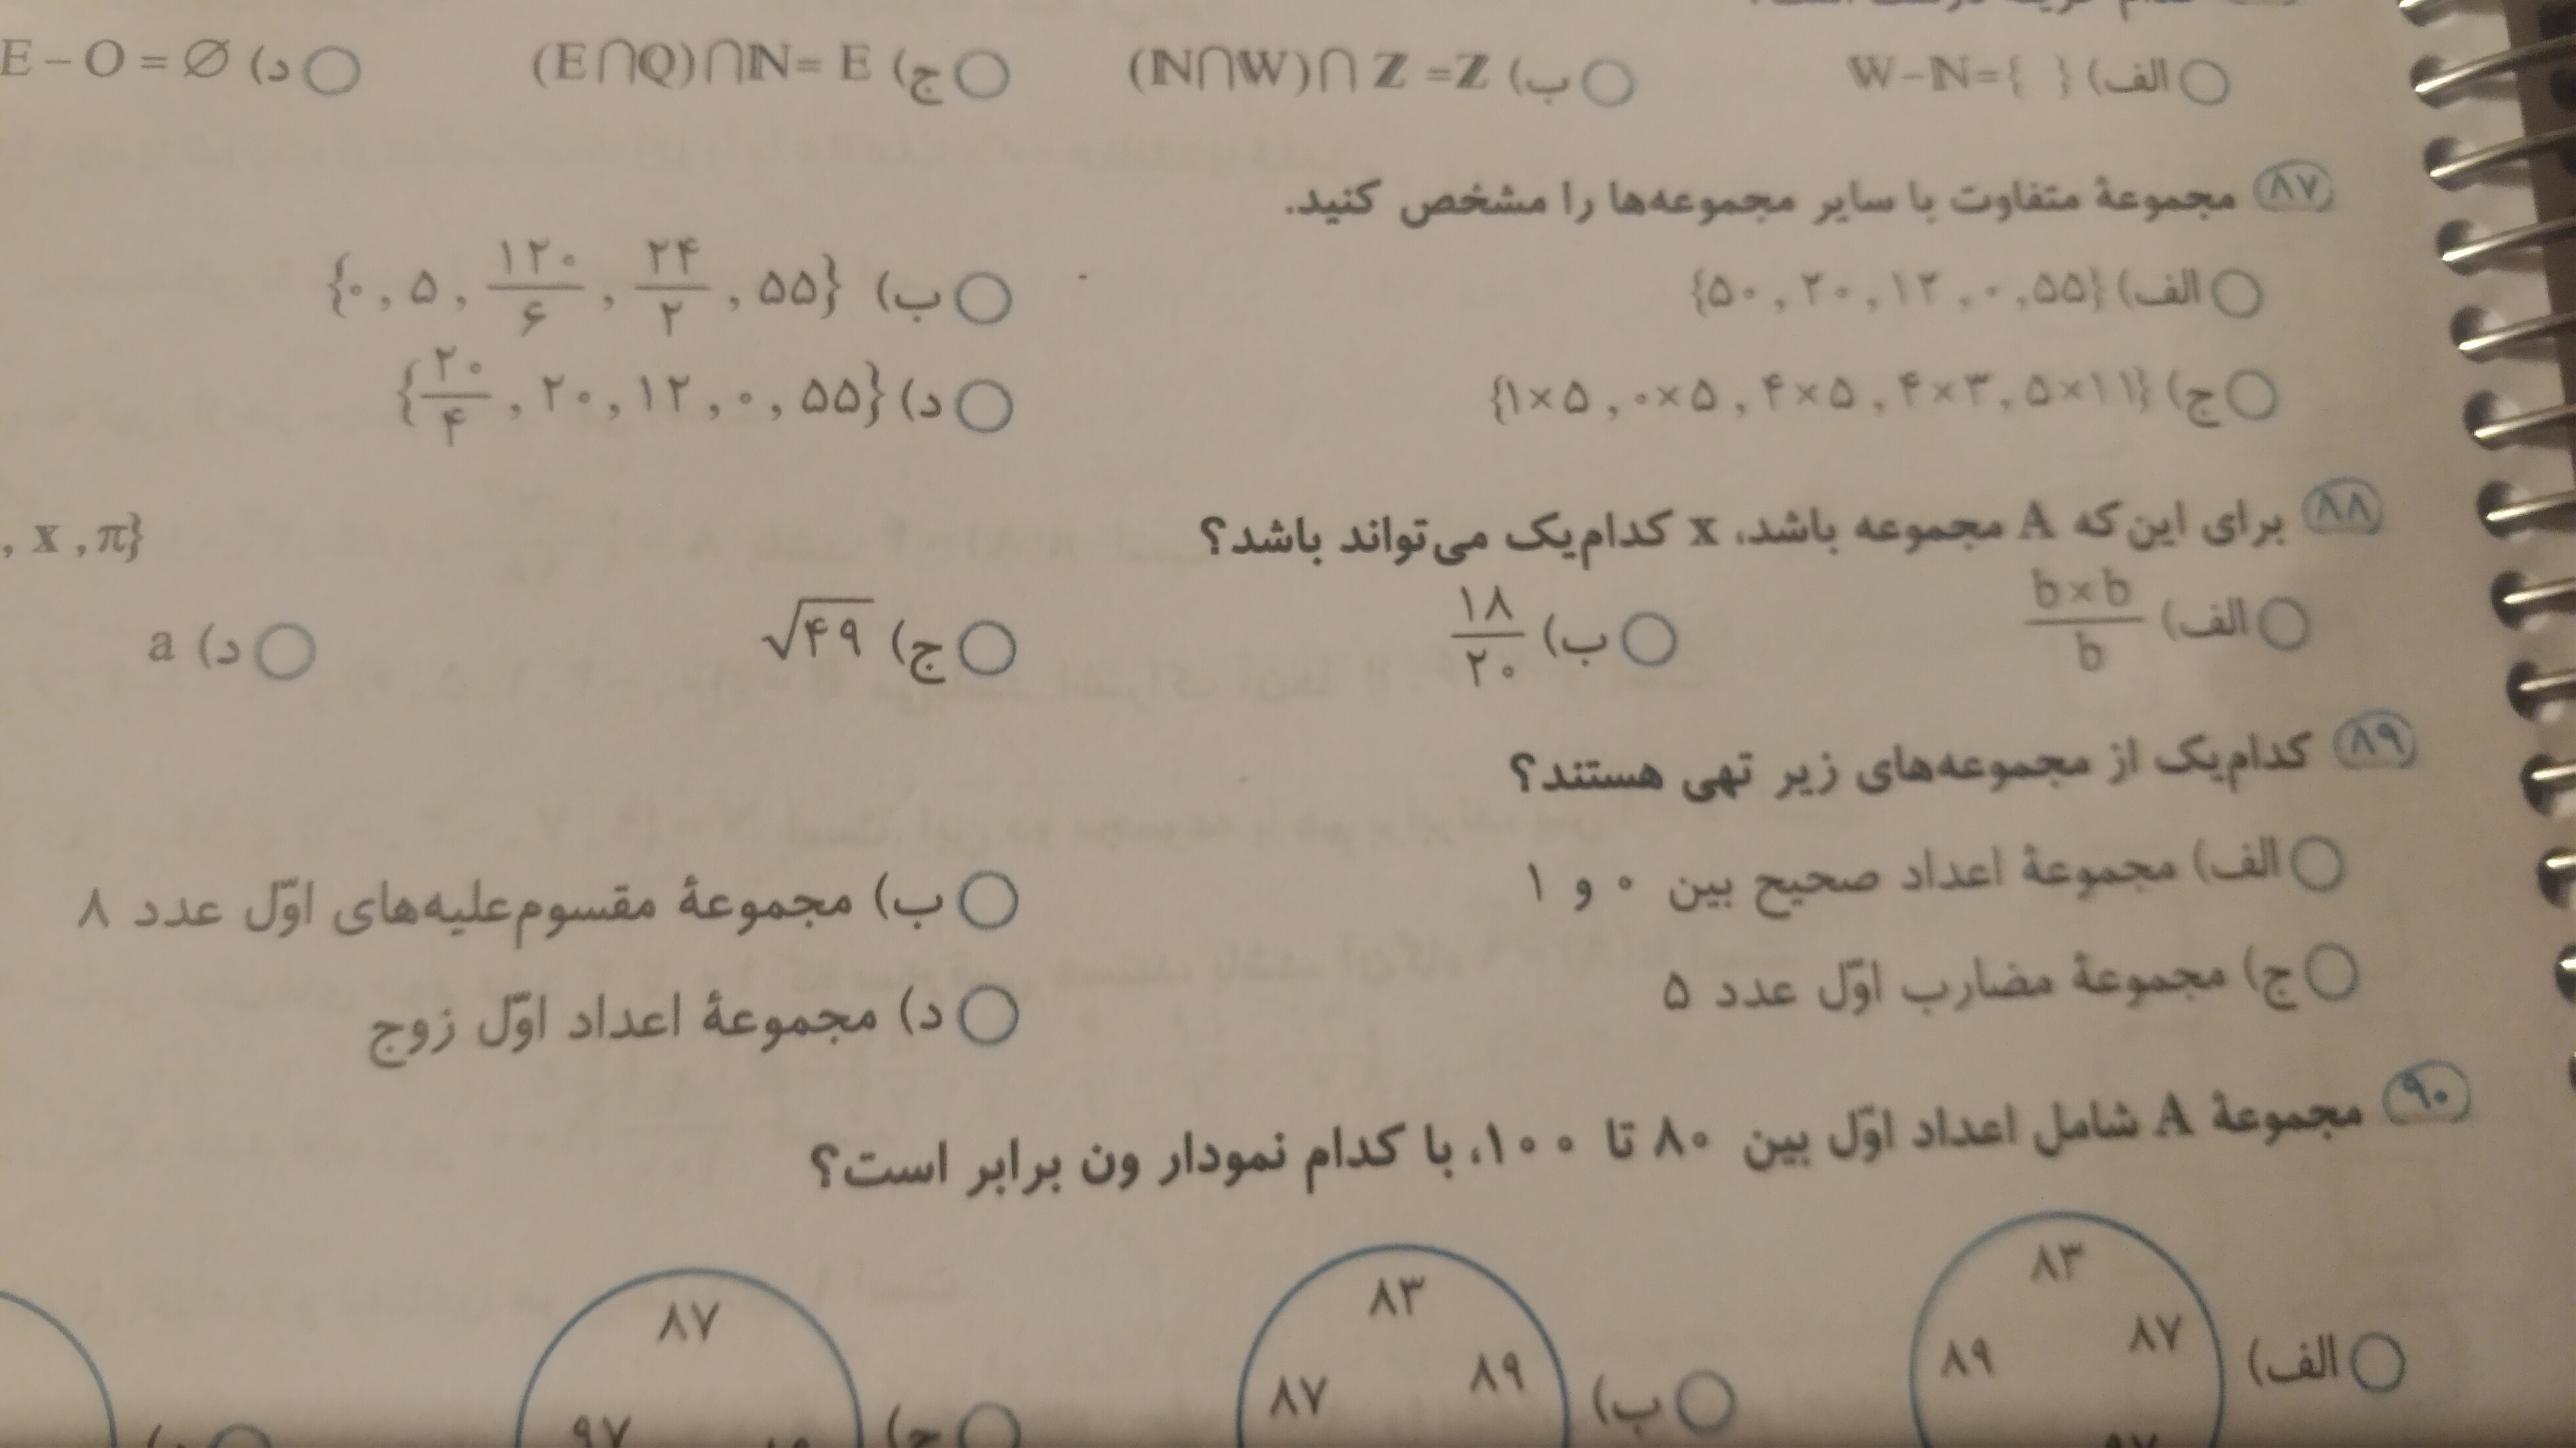 الف) W-N={ } ب) (N∩W)∩Z=Z ج) (E∩Q)∩N=E د) E-O=∅
۸۷ مجموعهٔ متفاوت با سایر مجموعه‌ها را مشخص کنید.
الف) {۵۰, ۲۰, ۱۲, ۰, ۵۵} ب) {۰, ۵, ۱۲۰/۶, ۲۴/۲, ۵۵}
ج) {۱×۵, ۰×۵, ۴×۵, ۴×۳, ۵×۱۱} د) {۲۰/۴, ۲۰, ۱۲, ۰, ۵۵}
۸۸ برای این‌که A مجموعه باشد، x کدام‌یک می‌تواند باشد؟ , x, π}
الف) b×b/b ب) ۱۸/۲۰ ج) √۴۹ د) a
۸۹ کدام‌یک از مجموعه‌های زیر تهی هستند؟
الف) مجموعهٔ اعداد صحیح بین ۰ و ۱ ب) مجموعهٔ مقسوم‌علیه‌های اوّل عدد ۸
ج) مجموعهٔ مضارب اوّل عدد ۵ د) مجموعهٔ اعداد اوّل زوج
۹۰ مجموعهٔ A شامل اعداد اوّل بین ۸۰ تا ۱۰۰، با کدام نمودار ون برابر است؟
الف) ۸۳ ۸۷ ۸۹ ۹۷
ب) ۸۳ ۸۹ ۸۷
ج) ۸۷ ۹۷